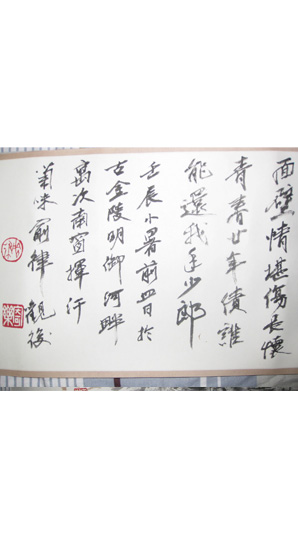 面壁情堪傷長懷
青春廿年債誰
能還我少郎
壬辰小暑前四日於
古金陵明御河畔
寓次南窗揮汗
律觀後